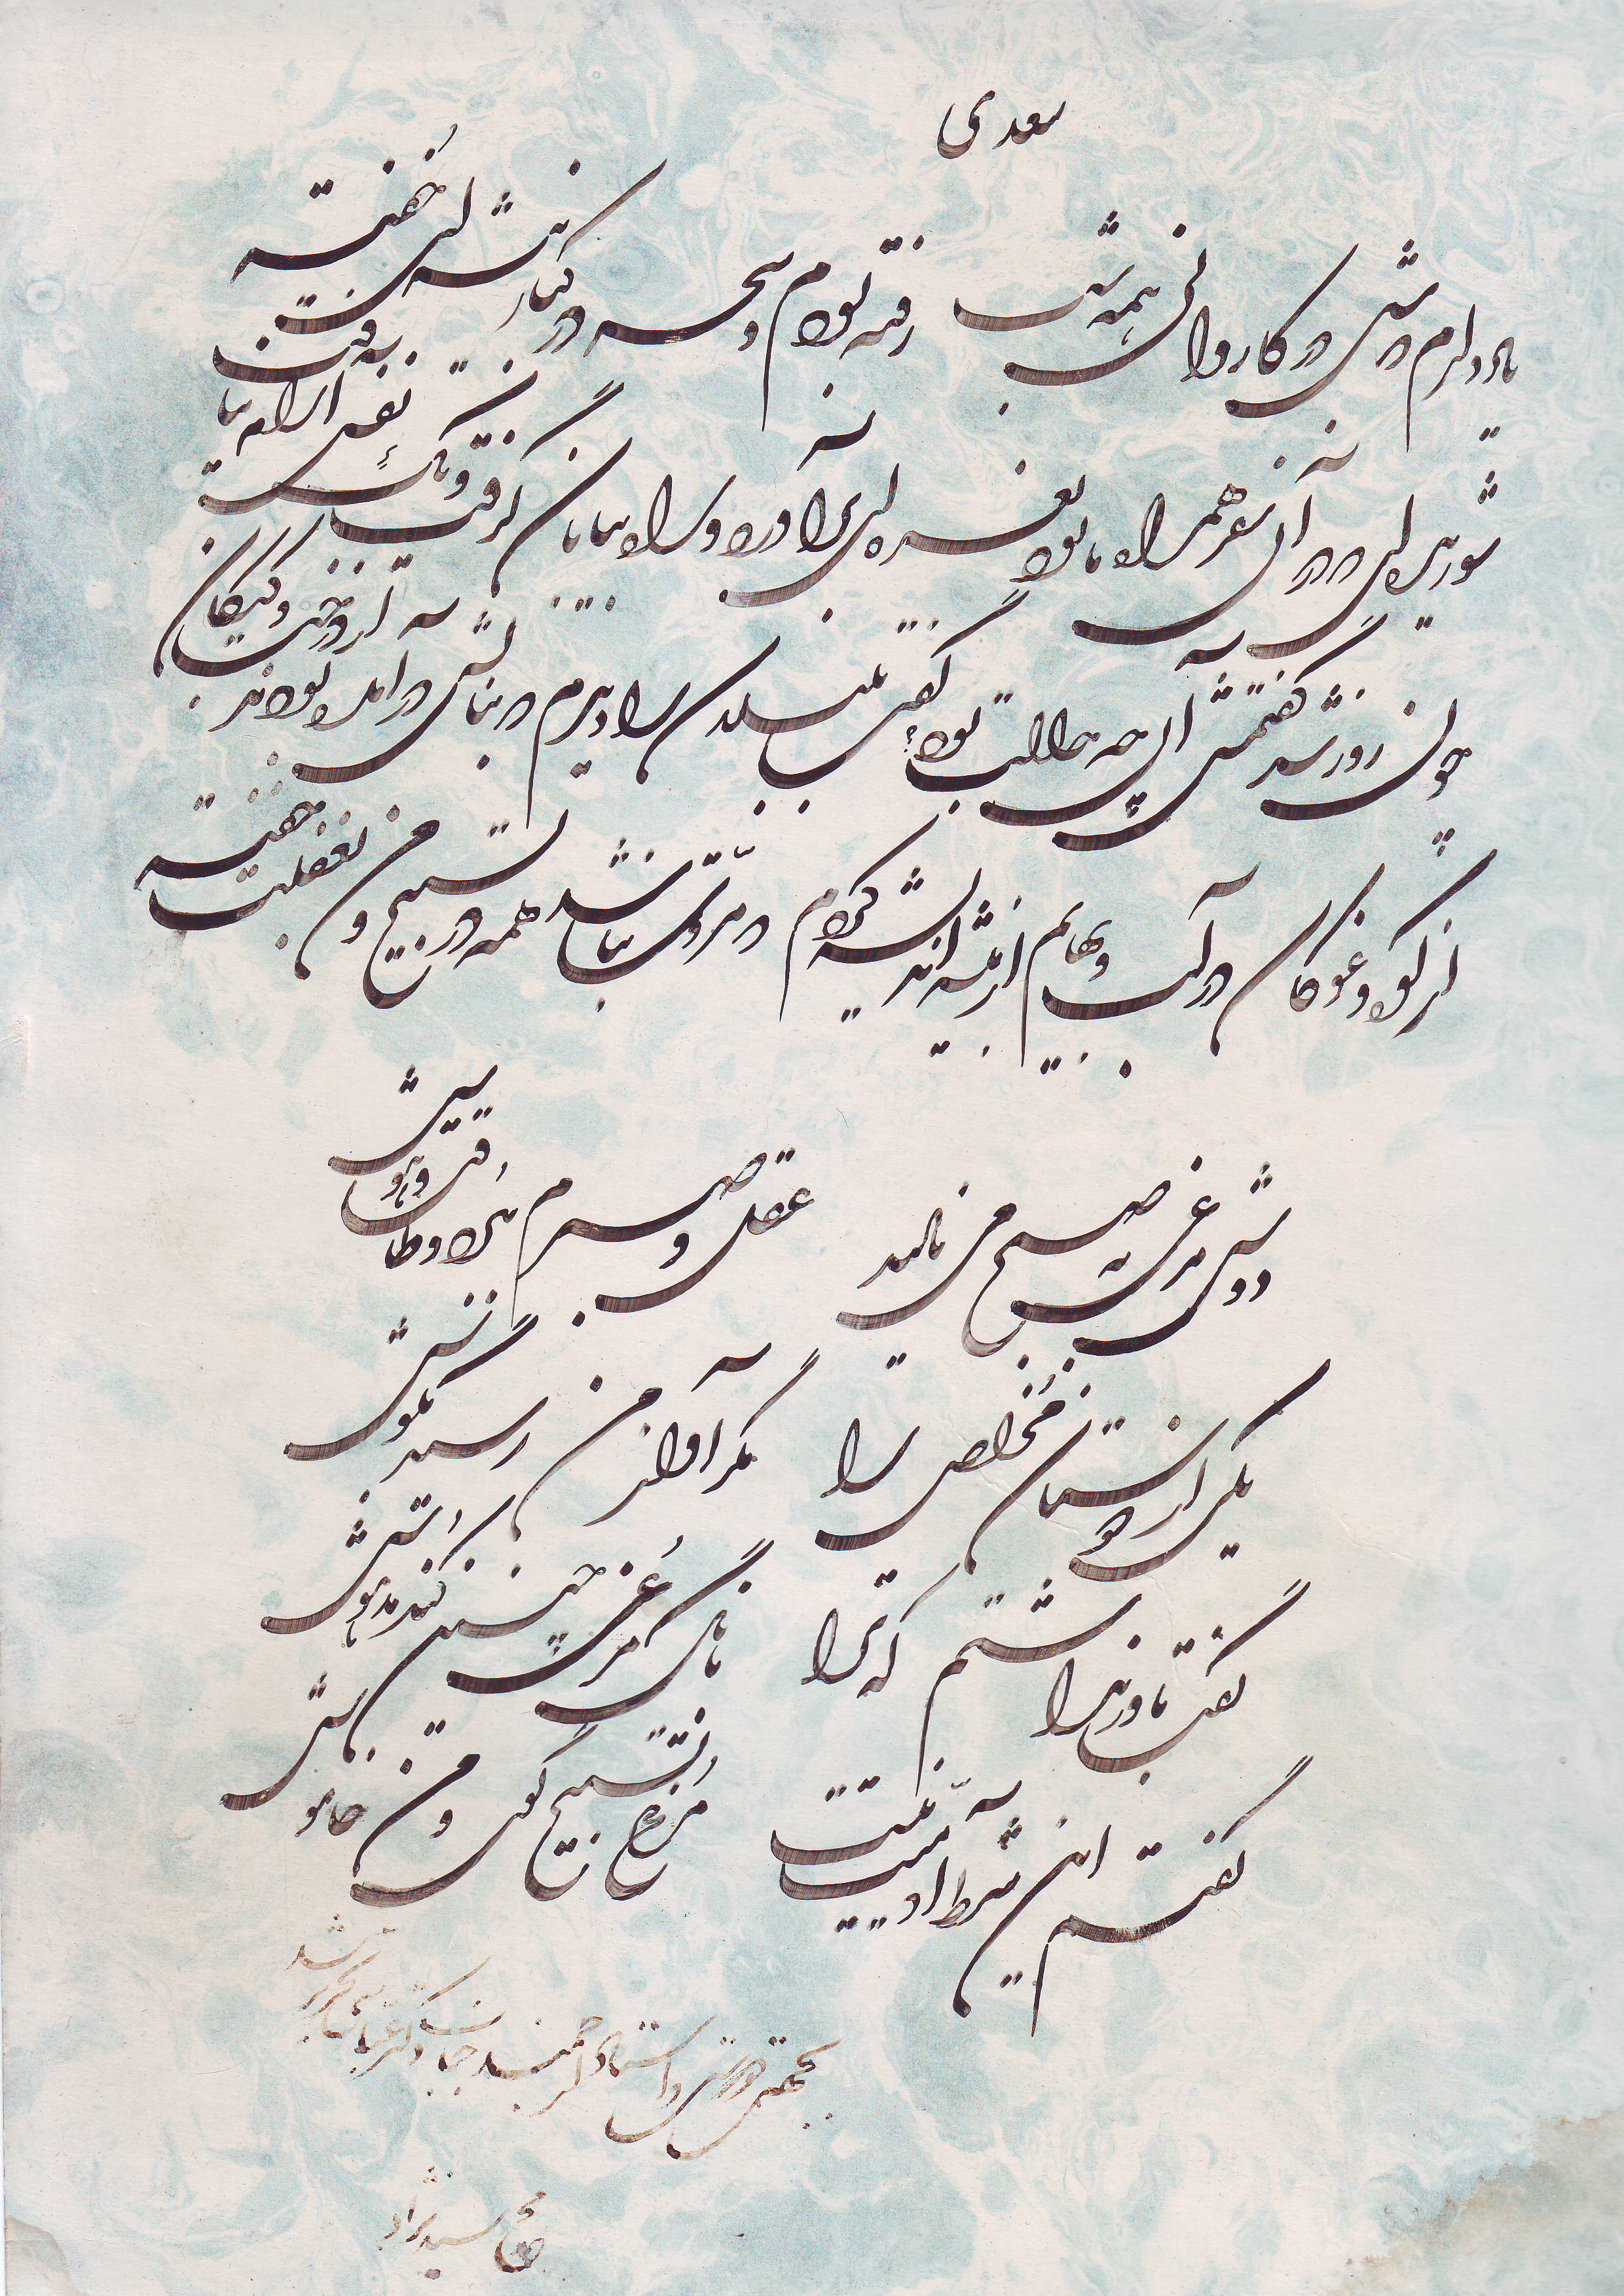 سعدی
یاد دارم که شبی در کاروانی همه شب رفته بودم و سحر در کنار بیشه ای خفته
شوریده ای که در آن سفر همراه ما بود نعره ای برآورد و راه بیابان گرفت و یک نفس آرام نیافت
چون روز شد گفتمش آن چه حالت بود؟ گفت بلبلان را دیدم که بنالش درآمده بودند از درخت و کبکان
از کوه و غوکان در آب و بهایم از بیشه اندیشه کردم که مروّت نباشد همه در تسبیح و من بغفلت خفته
دوش مرغی به صبح می نالید عقل و صبرم ببُرد و طاقت و هوش
یکی از دوستان مُخلص را مگر آواز من رسید بگوش
گفت باور نداشتم که ترا بانگ مُرغی چنین کند مدهوش
گفتم این شرط آدمیّت نیست مُرغ تسبیح گوی و من خاموش
استاد ارجمند جناب دکتر تحریر شد